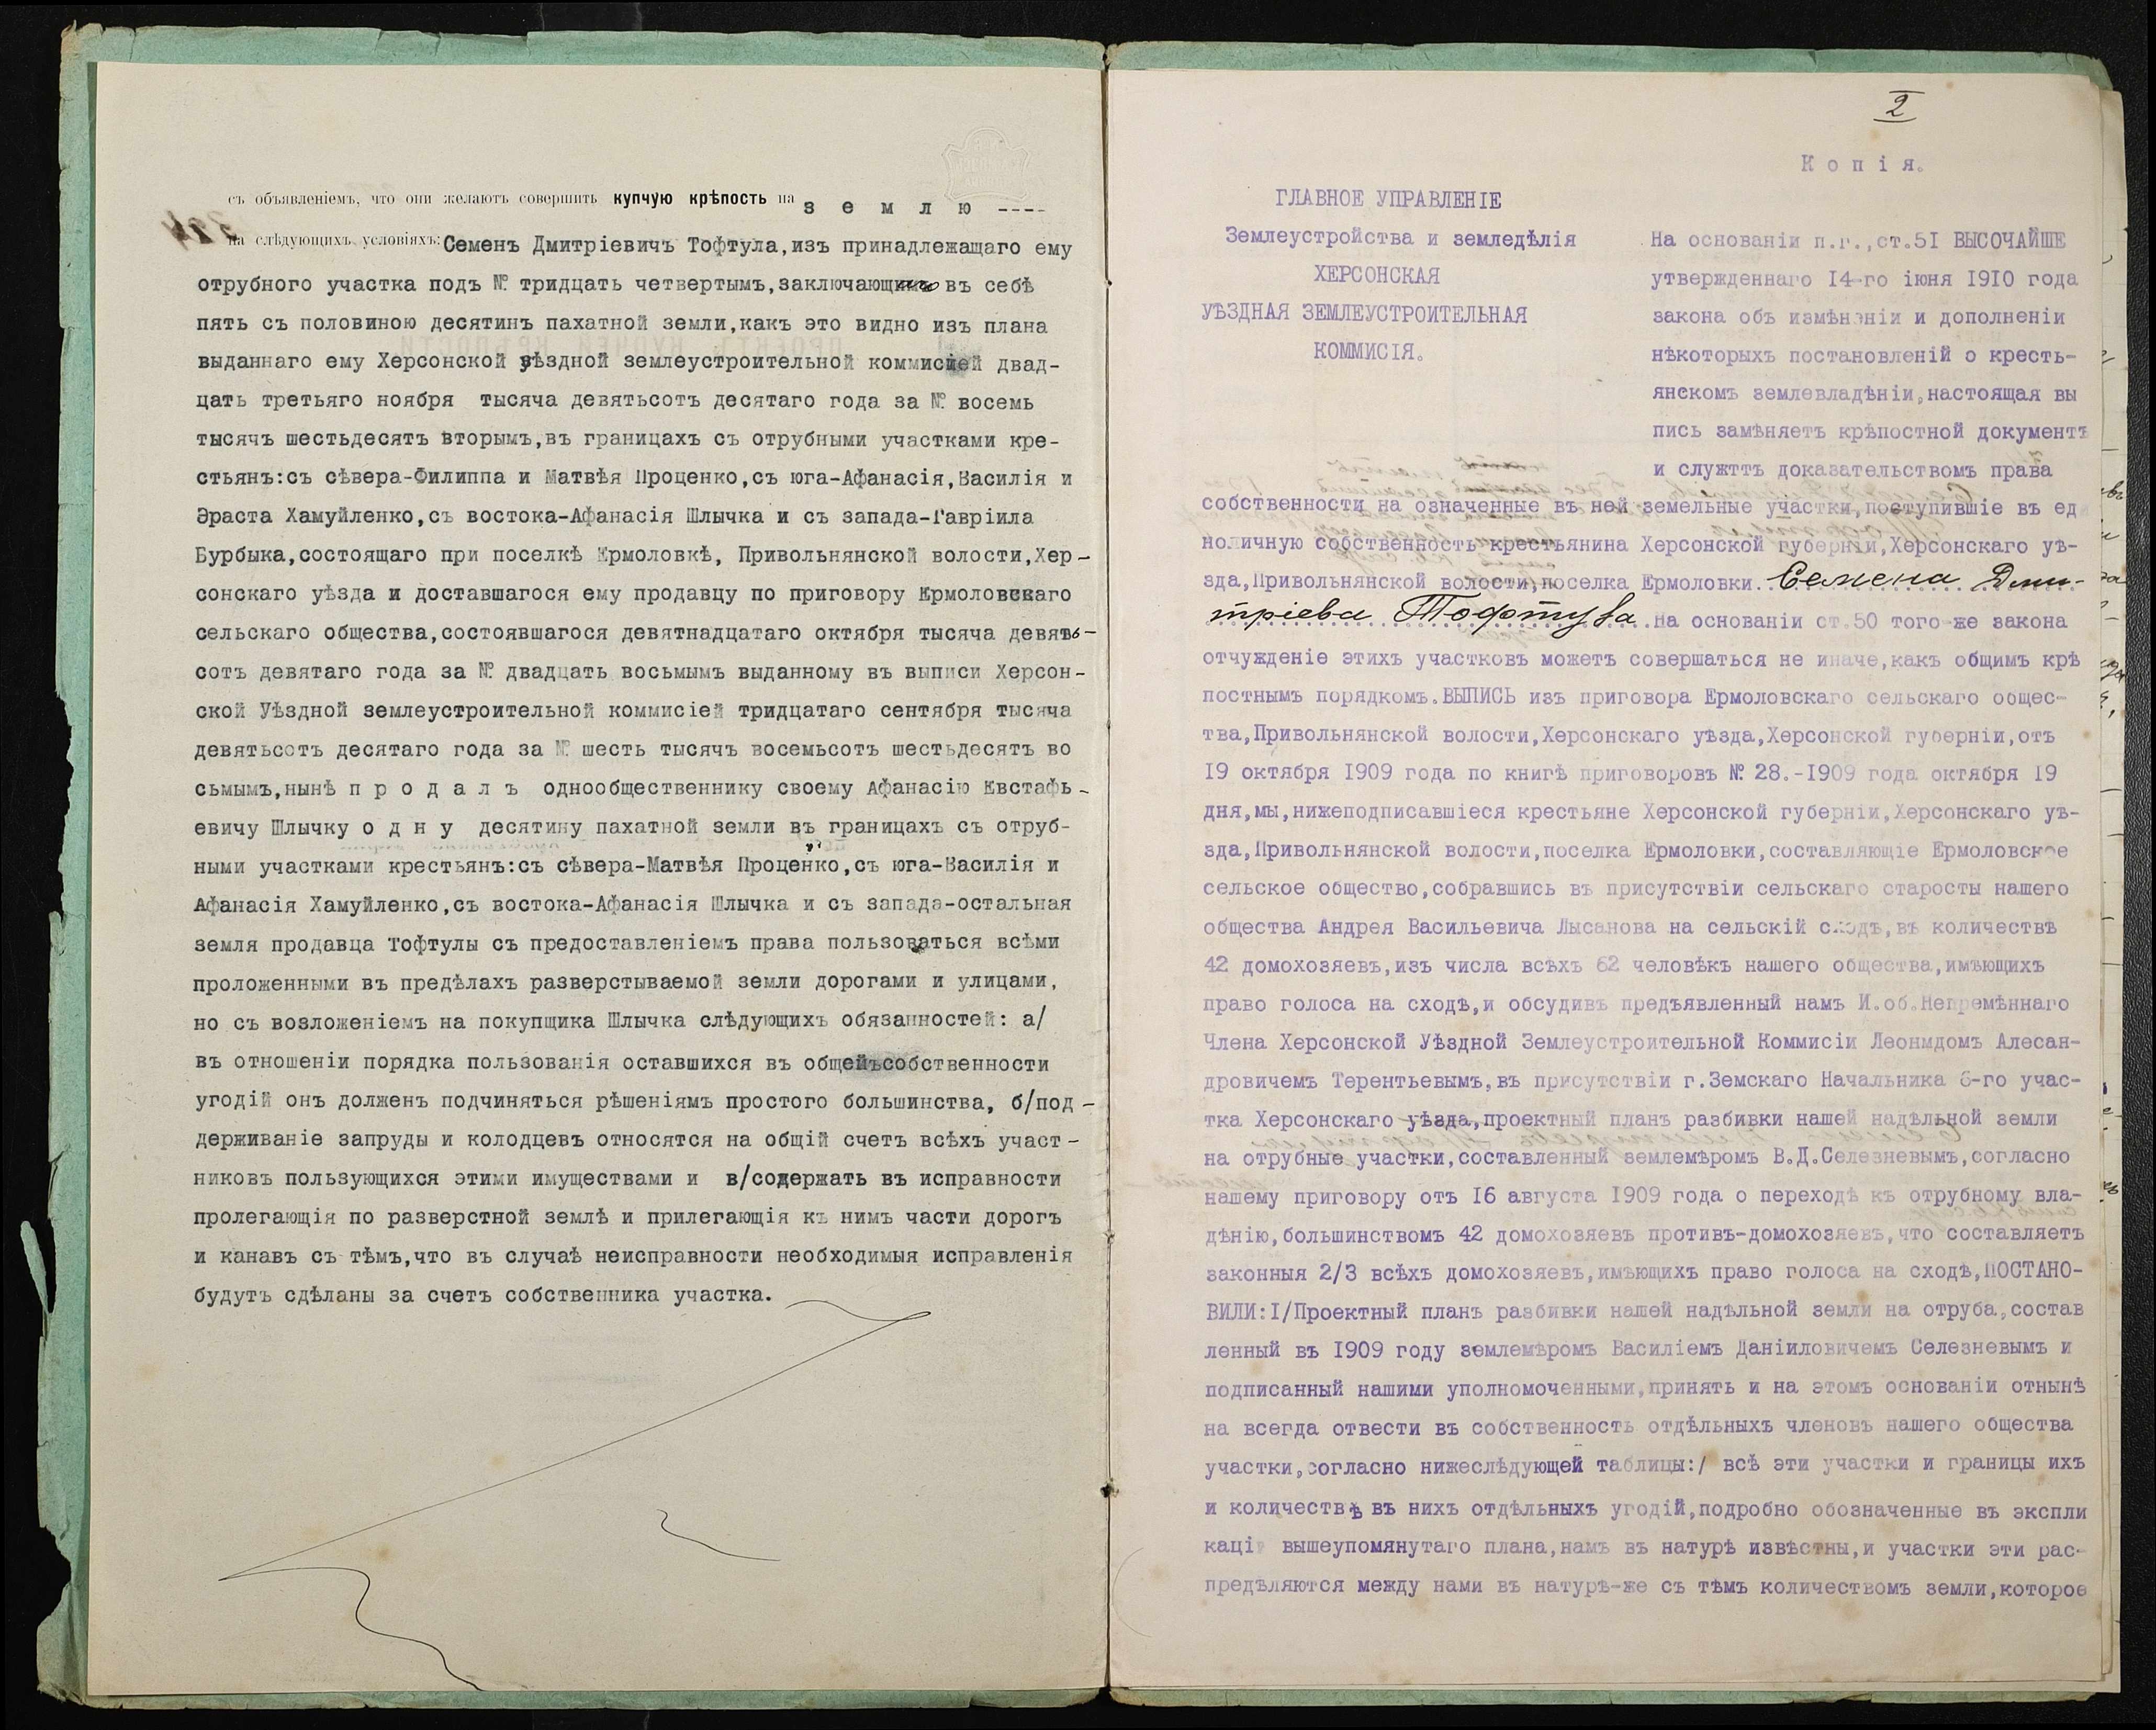 съ объявленіемъ, что они желаютъ совершить купчую крѣпость на з е м л ю ----
на слѣдующихъ условіяхъ: Семенъ Дмитріевичъ Тофтула,изъ принадлежащаго ему
отрубного участка подъ № тридцать четвертымъ,заключающимъ въ себѣ
пять съ половиною десятинъ пахатной земли,какъ это видно изъ плана
выданнаго ему Херсонской уѣздной землеустроительной коммисіей двад-
цать третьяго ноября тысяча девятьсотъ десятаго года за № восемь
тысячъ шестьдесятъ вторымъ,въ границахъ съ отрубными участками кре-
стьянъ:съ сѣвера-Филиппа и Матвѣя Проценко,съ юга-Афанасія,Василія и
Эраста Хамуйленко,съ востока-Афанасія Шлычка и съ запада-Гавріила
Бурбыка,состоящаго при поселкѣ Ермоловкѣ, Привольнянской волости,Хер-
сонскаго уѣзда и доставшагося ему продавцу по приговору Ермоловскаго
сельскаго общества,состоявшагося девятнадцатаго октября тысяча девять-
сотъ девятаго года за № двадцать восьмымъ выданному въ выписи Херсон-
ской Уѣздной землеустроительной коммисіей тридцатаго сентября тысяча
девятьсотъ десятаго года за № шесть тысячъ восемьсотъ шестьдесятъ во
сьмымъ,нынѣ п р о д а л ъ однообщественнику своему Афанасію Евстафь-
евичу Шлычку о д н у десятину пахатной земли въ границахъ съ отруб-
ными участками крестьянъ:съ сѣвера-Матвѣя Проценко,съ юга-Василія и
Афанасія Хамуйленко,съ востока-Афанасія Шлычка и съ запада-остальная
земля продавца Тофтулы съ предоставленіемъ права пользоваться всѣми
проложенными въ предѣлахъ разверстываемой земли дорогами и улицами,
но съ возложеніемъ на покупщика Шлычка слѣдующихъ обязанностей: а/
въ отношеніи порядка пользованія оставшихся въ общей собственности
угодій онъ долженъ подчиняться рѣшеніямъ простого большинства, б/под-
держиваніе запруды и колодцевъ относятся на общій счетъ всѣхъ участ-
никовъ пользующихся этими имуществами и в/содержать въ исправности
пролегающія по разверстной землѣ и прилегающія къ нимъ части дорогъ
и канавъ съ тѣмъ,что въ случаѣ неисправности необходимыя исправленія
будутъ сдѣланы за счетъ собственника участка.
2
К о п і я.
ГЛАВНОЕ УПРАВЛЕНІЕ
Землеустройства и земледѣлія
ХЕРСОНСКАЯ
УѢЗДНАЯ ЗЕМЛЕУСТРОИТЕЛЬНАЯ
КОММИСІЯ.
На основаніи п.г.,ст.5I ВЫСОЧАЙШЕ
утвержденнаго I4-го іюня I9I0 года
закона объ измѣненіи и дополненіи
нѣкоторыхъ постановленій о кресть-
янскомъ землевладѣніи,настоящая вы
пись замѣняетъ крѣпостной документъ
и служттъ доказательствомъ права
собственности на означенные въ ней земельные участки,поступившіе въ ед
ноличную собственность крестьянина Херсонской губерніи,Херсонскаго уѣ-
зда,Привольнянской волости,поселка Ермоловки. Семена Дми-
тріева Тофтула. На основаніи ст.50 того-же закона
отчужденіе этихъ участковъ можетъ совершаться не иначе,какъ общимъ крѣ
постнымъ порядкомъ.ВЫПИСЬ изъ приговора Ермоловскаго сельскаго общес-
тва,Привольнянской волости,Херсонскаго уѣзда,Херсонской губерніи,отъ
I9 октября I909 года по книгѣ приговоровъ № 28.-I909 года октября I9
дня,мы,нижеподписавшіеся крестьяне Херсонской губерніи,Херсонскаго уѣ-
зда,Привольнянской волости,поселка Ермоловки,составляющіе Ермоловское
сельское общество,собравшись въ присутствіи сельскаго старосты нашего
общества Андрея Васильевича Лысанова на сельскій сходъ,въ количествѣ
42 домохозяевъ,изъ числа всѣхъ 62 человѣкъ нашего общества,имѣющихъ
право голоса на сходѣ,и обсудивъ предъявленный намъ И.об.Непремѣннаго
Члена Херсонской Уѣздной Землеустроительной Коммисіи Леонмдомъ Алесан-
дровичемъ Терентьевымъ,въ присутствіи г.Земскаго Начальника 6-го учас-
тка Херсонскаго уѣзда,проектный планъ разбивки нашей надѣльной земли
на отрубные участки,составленный землемѣромъ В.Д.Селезневымъ,согласно
нашему приговору отъ I6 августа I909 года о переходѣ къ отрубному вла-
дѣнію,большинствомъ 42 домохозяевъ противъ-домохозяевъ,что составляетъ
законныя 2/3 всѣхъ домохозяевъ,имѣющихъ право голоса на сходѣ,ПОСТАНО-
ВИЛИ:I/Проектный планъ разбивки нашей надѣльной земли на отруба,состав
ленный въ I909 году землемѣромъ Василіемъ Даніиловичемъ Селезневымъ и
подписанный нашими уполномоченными,принять и на этомъ основаніи отнынѣ
на всегда отвести въ собственность отдѣльныхъ членовъ нашего общества
участки,согласно нижеслѣдующей таблицы:/ всѣ эти участки и границы ихъ
и количествѣ въ нихъ отдѣльныхъ угодій,подробно обозначенные въ экспли
каціи вышеупомянутаго плана,намъ въ натурѣ извѣстны,и участки эти рас-
предѣляются между нами въ натурѣ-же съ тѣмъ количествомъ земли,которое